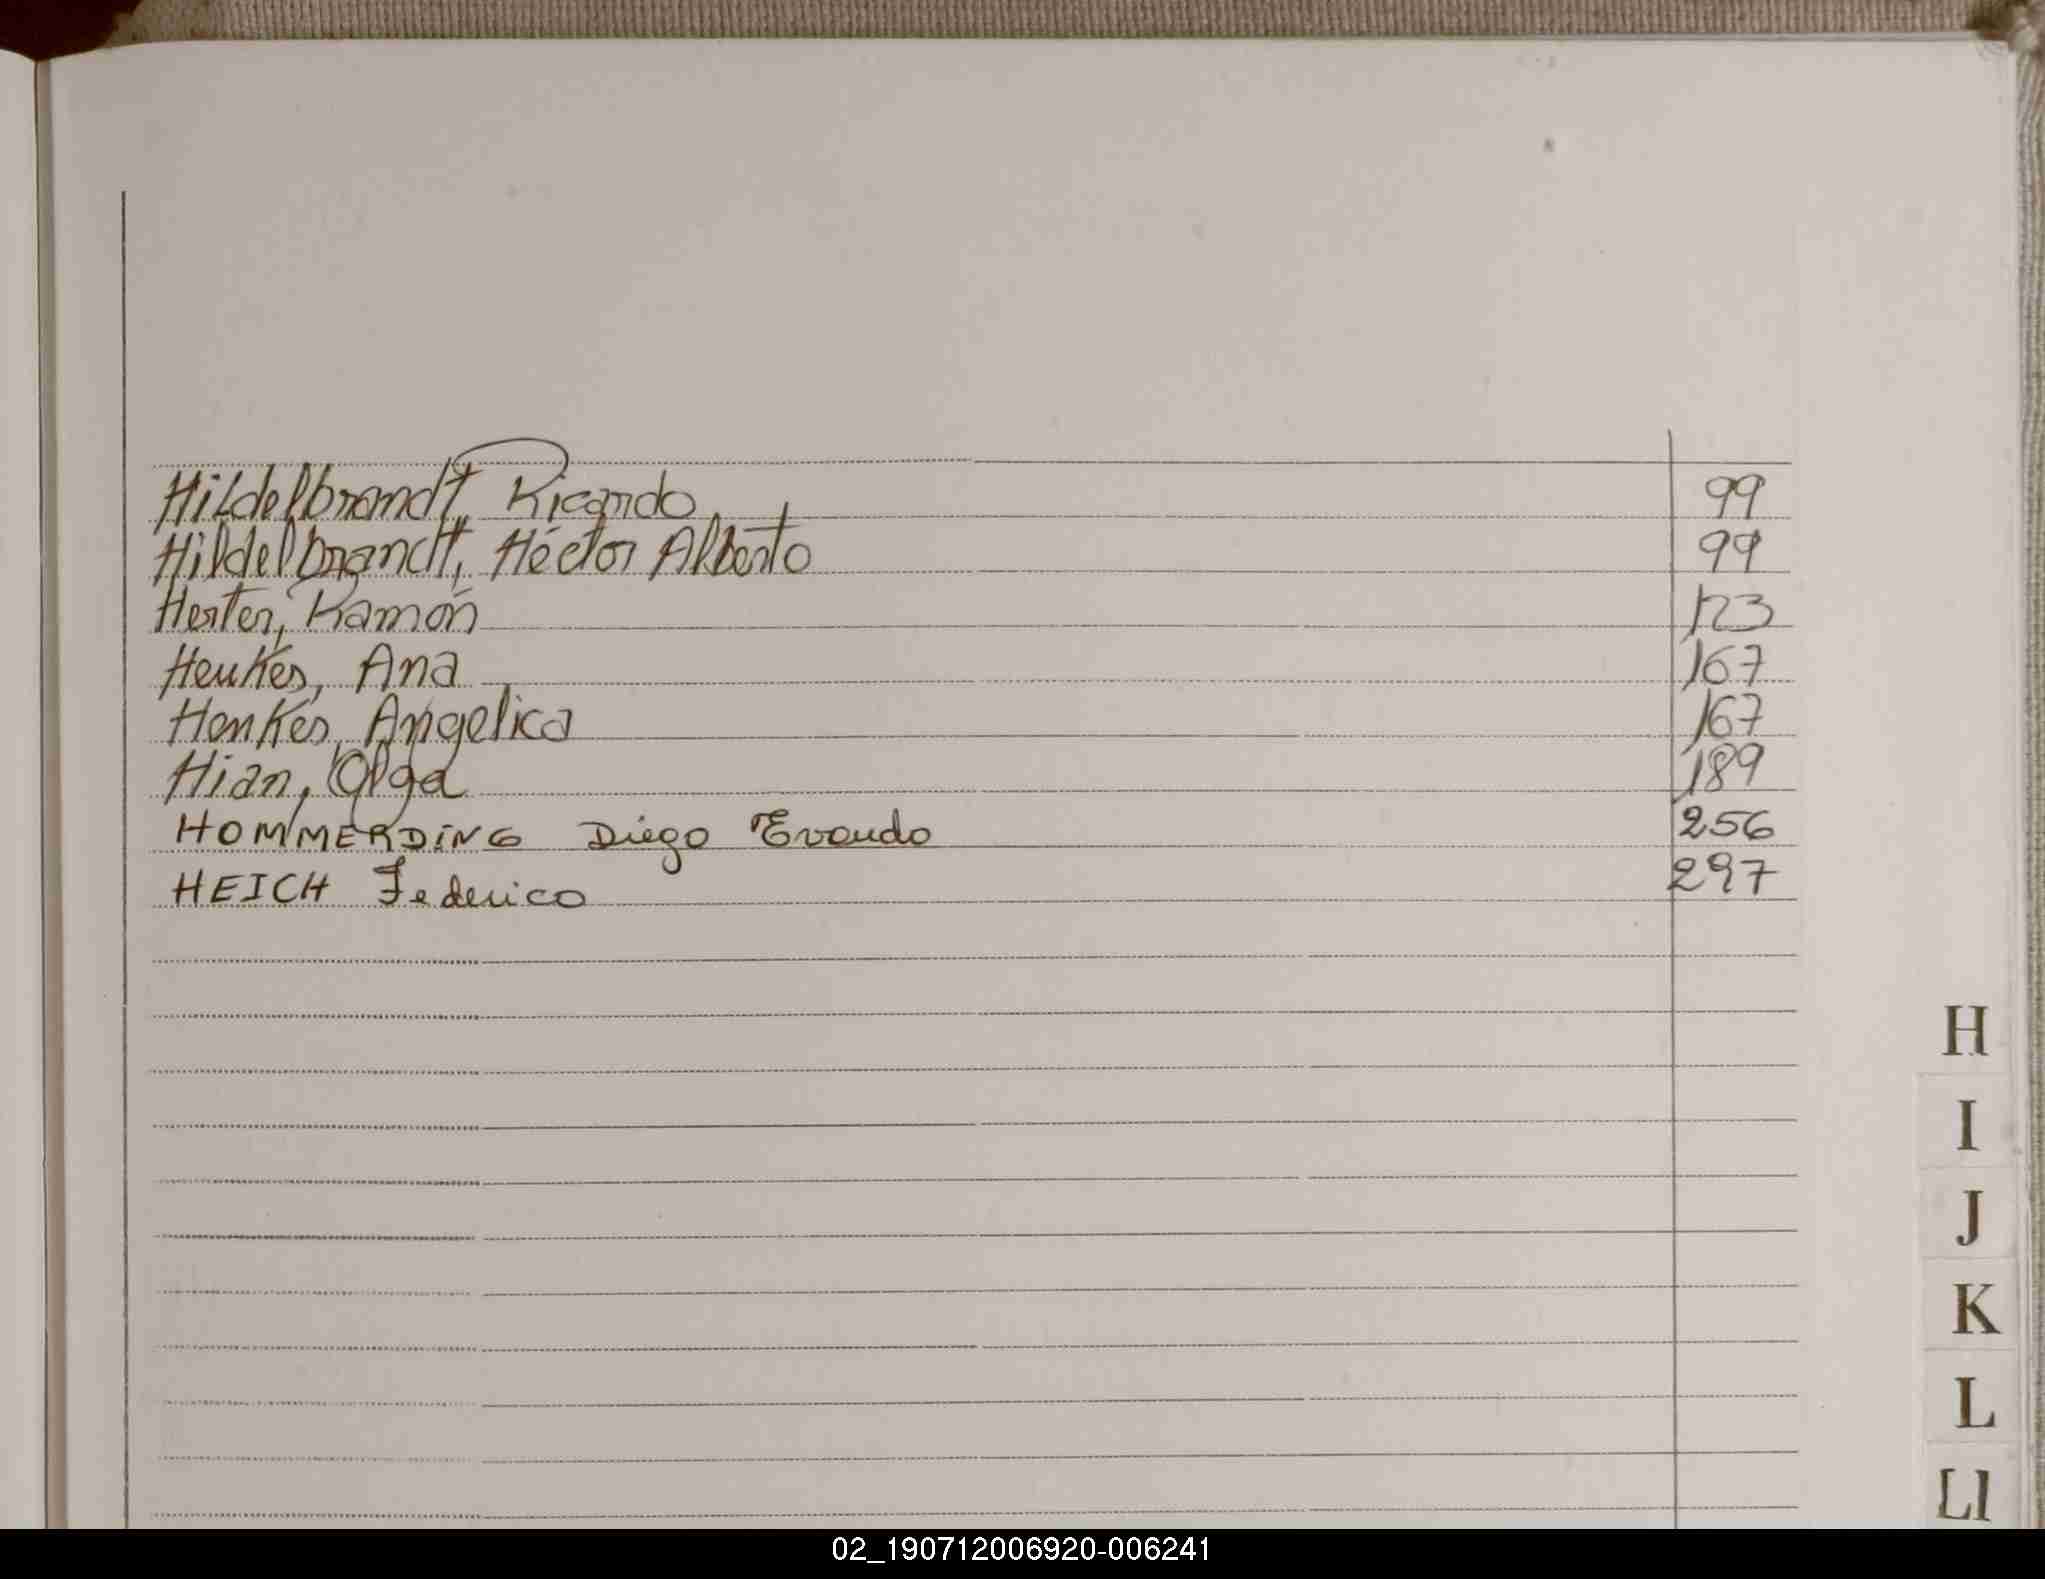 Hildelbrandt, Ricardo 99
Hildelbrandt, Héctor Alberto 99
Herter, Ramón 123
Heukes, Ana 167
Henkes, Angelica 167
Hian, Olga 189
HOMMERDING Diego Evaudo 256
HEICH Federico 297
H
I
J
K
L
Ll
02_190712006920-006241